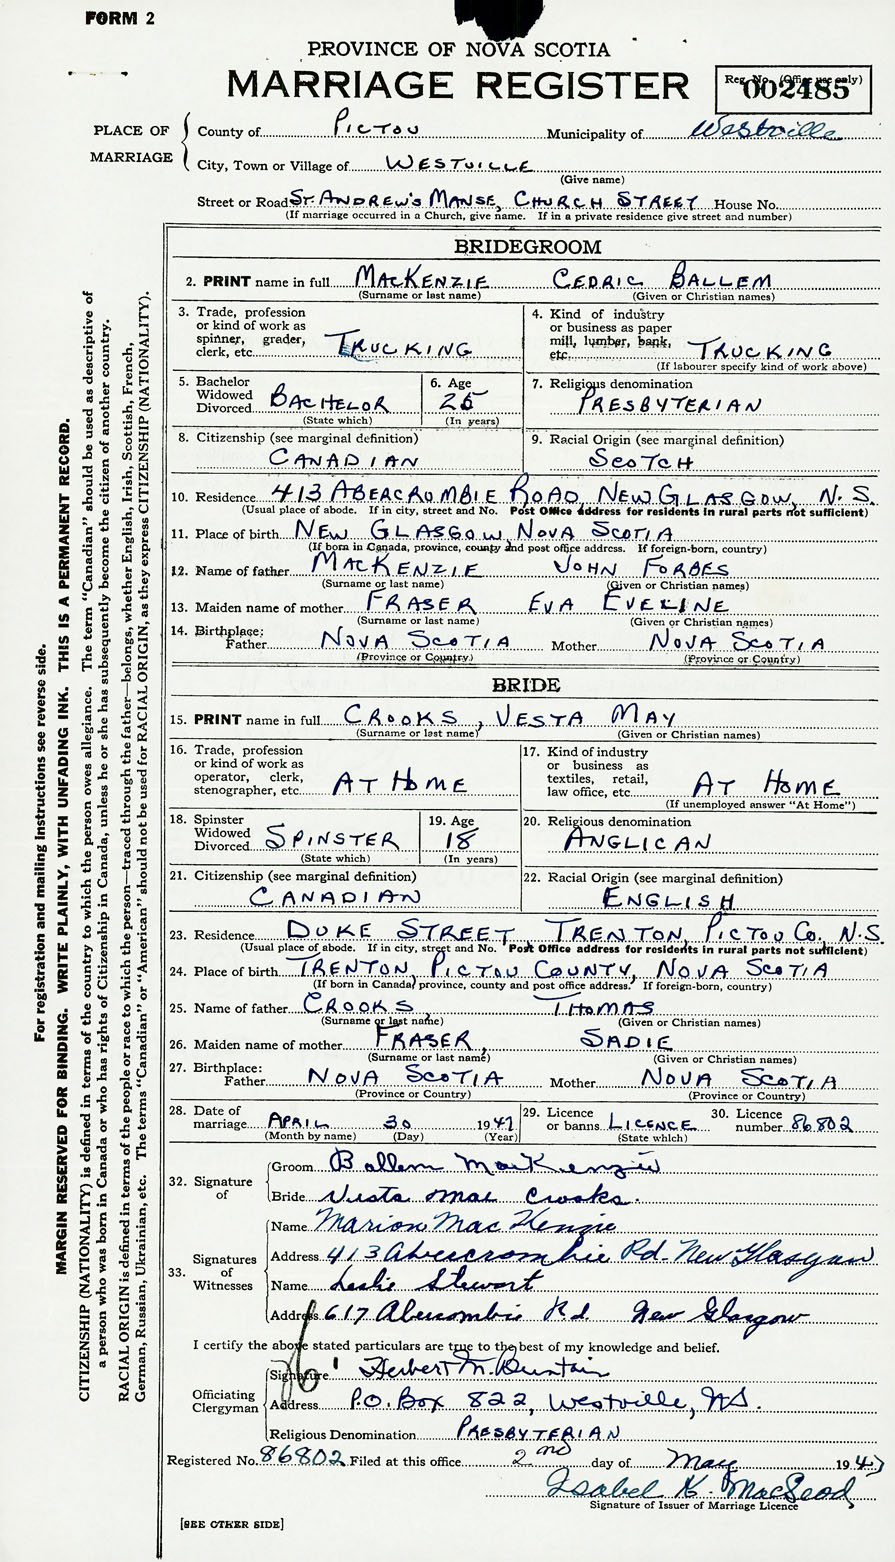 FORM 2
PROVINCE OF NOVA SCOTIA
MARRIAGE REGISTER
Reg. No. (Office use only)
002485
PLACE OF MARRIAGE
County of PICTOU Municipality of Westville
City, Town or Village of WESTVILLE
(Give name)
Street or Road ST. ANDREW'S MANSE, CHURCH STREET House No.
(If marriage occurred in a Church, give name. If in a private residence give street and number)
BRIDEGROOM
2. PRINT name in full MACKENZIE CEDRIC BALLEM
(Surname or last name) (Given or Christian names)
3. Trade, profession or kind of work as spinner, grader, clerk, etc. TRUCKING
4. Kind of industry or business as paper mill, lumber, bank, etc. TRUCKING
(If labourer specify kind of work above)
5. Bachelor Widowed Divorced BACHELOR
(State which)
6. Age 25
(In years)
7. Religious denomination
PRESBYTERIAN
8. Citizenship (see marginal definition)
CANADIAN
9. Racial Origin (see marginal definition)
SCOTCH
10. Residence 413 ABERCROMBIE ROAD, NEW GLASGOW, N.S.
(Usual place of abode. If in city, street and No. Post Office address for residents in rural parts not sufficient)
11. Place of birth NEW GLASGOW, NOVA SCOTIA
(If born in Canada, province, county and post office address. If foreign-born, country)
12. Name of father MACKENZIE JOHN FORBES
(Surname or last name) (Given or Christian names)
13. Maiden name of mother FRASER EVA EVELINE
(Surname or last name) (Given or Christian names)
14. Birthplace:
Father NOVA SCOTIA Mother NOVA SCOTIA
(Province or Country) (Province or Country)
BRIDE
15. PRINT name in full CROOKS, VESTA MAY
(Surname or last name) (Given or Christian names)
16. Trade, profession or kind of work as operator, clerk, stenographer, etc. AT HOME
17. Kind of industry or business as textiles, retail, law office, etc. AT HOME
(If unemployed answer "At Home")
18. Spinster Widowed Divorced SPINSTER
(State which)
19. Age 18
(In years)
20. Religious denomination
ANGLICAN
21. Citizenship (see marginal definition)
CANADIAN
22. Racial Origin (see marginal definition)
ENGLISH
23. Residence DUKE STREET, TRENTON, PICTOU CO., N.S.
(Usual place of abode. If in city, street and No. Post Office address for residents in rural parts not sufficient)
24. Place of birth TRENTON, PICTOU COUNTY, NOVA SCOTIA
(If born in Canada, province, county and post office address. If foreign-born, country)
25. Name of father CROOKS, THOMAS
(Surname or last name) (Given or Christian names)
26. Maiden name of mother FRASER, SADIE
(Surname or last name) (Given or Christian names)
27. Birthplace:
Father NOVA SCOTIA Mother NOVA SCOTIA
(Province or Country) (Province or Country)
28. Date of marriage APRIL 30 1947
(Month by name) (Day) (Year)
29. Licence or banns LICENCE
(State which)
30. Licence number 86802
32. Signature of
Groom Ballem MacKenzie
Bride Vesta Mae Crooks.
33. Signatures of Witnesses
Name Marion MacKenzie
Address 413 Abercrombie Rd. New Glasgow
Name Leslie Stewart
Address 617 Abercombie Rd. New Glasgow
I certify the above stated particulars are true to the best of my knowledge and belief.
Officiating Clergyman
Signature Herbert M. Buntain
Address P.O. Box 822, Westville, N.S.
Religious Denomination PRESBYTERIAN
Registered No. 86802 Filed at this office 2nd day of May 1947
Isabel K. MacLeod
Signature of Issuer of Marriage Licence
[SEE OTHER SIDE]
For registration and mailing instructions see reverse side.
MARGIN RESERVED FOR BINDING. WRITE PLAINLY, WITH UNFADING INK. THIS IS A PERMANENT RECORD.
CITIZENSHIP (NATIONALITY) is defined in terms of the country to which the person owes allegiance. The term "Canadian" should be used as descriptive of
a person who was born in Canada or who has rights of Citizenship in Canada, unless he or she has subsequently become the citizen of another country.
RACIAL ORIGIN is defined in terms of the people or race to which the person—traced through the father—belongs, whether English, Irish, Scottish, French,
German, Russian, Ukrainian, etc. The terms "Canadian" or "American" should not be used for RACIAL ORIGIN, as they express CITIZENSHIP (NATIONALITY).